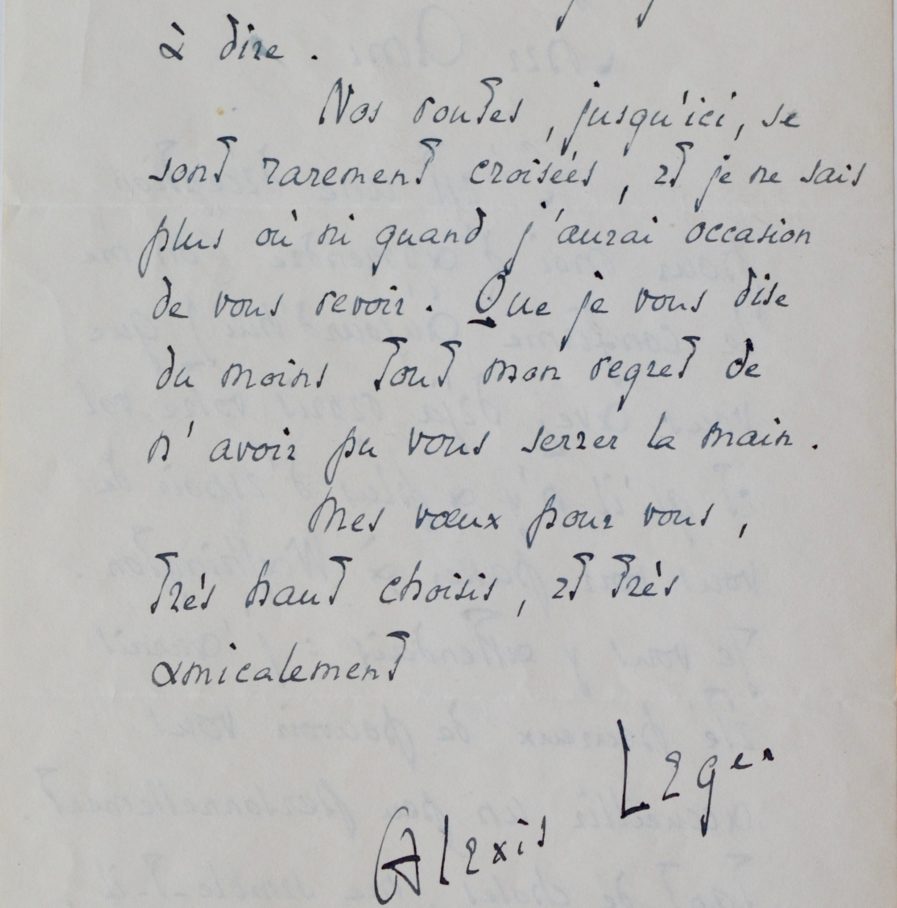 à dire.
Nos routes, jusqu'ici, se
sont rarement croisées, et je ne sais
plus où ni quand j'aurai occasion
de vous revoir. Que je vous dise
du moins tout mon regret de
n'avoir pu vous serrer la main.
Mes vœux pour vous,
très haut choisis, et très
amicalement
Alexis Leger